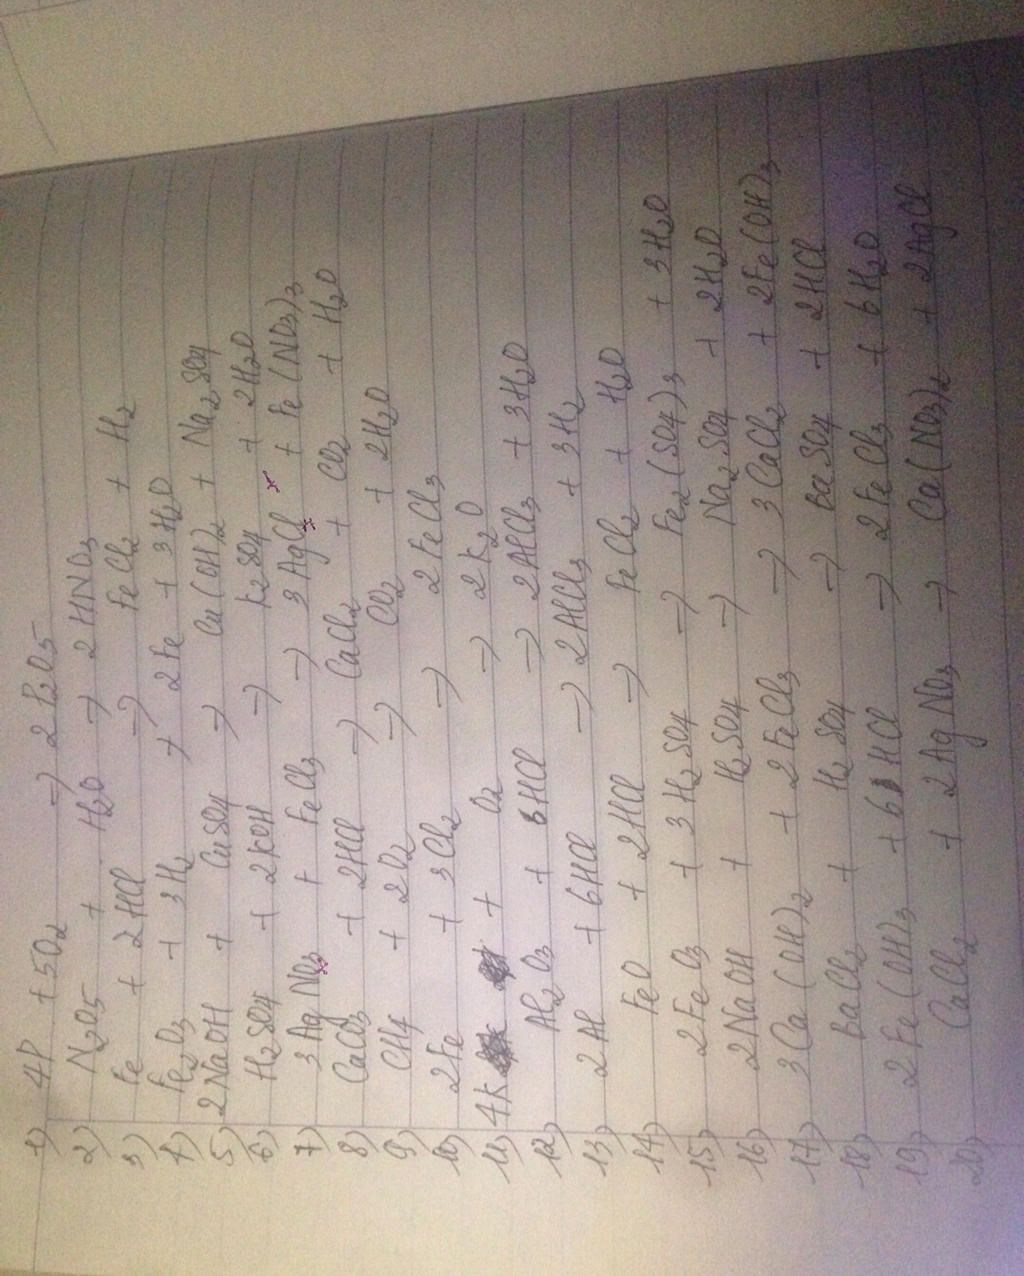 1) 4P + 5O2 → 2P2O5
2) N2O5 + H2O → 2HNO3
3) Fe + 2HCl → FeCl2 + H2
4) Fe2O3 + 3H2 → 2Fe + 3H2O
5) 2NaOH + CuSO4 → Cu(OH)2 + Na2SO4
6) H2SO4 + 2KOH → K2SO4 + 2H2O
7) 3AgNO3 + FeCl3 → 3AgCl + Fe(NO3)3
8) CaCO3 + 2HCl → CaCl2 + CO2 + H2O
9) CH4 + 2O2 → CO2 + 2H2O
10) 2Fe + 3Cl2 → 2FeCl3
11) 4K + O2 → 2K2O
12) Al2O3 + 6HCl → 2AlCl3 + 3H2O
13) 2Al + 6HCl → 2AlCl3 + 3H2
14) FeO + 2HCl → FeCl2 + H2O
15) 2FeO3 + 3H2SO4 → Fe2(SO4)3 + 3H2O
16) 2NaOH + H2SO4 → Na2SO4 + 2H2O
17) 3Ca(OH)2 + 2FeCl3 → 3CaCl2 + 2Fe(OH)3
18) BaCl2 + H2SO4 → BaSO4 + 2HCl
19) 2Fe(OH)3 + 6HCl → 2FeCl3 + 6H2O
20) CaCl2 + 2AgNO3 → Ca(NO3)2 + 2AgCl